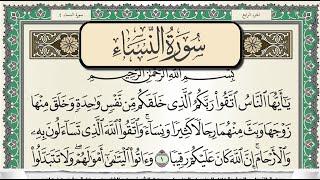 الجزء الرابع
سورة النساء ٤
سورة النساء
بسم الله الرحمن الرحيم
يَٰٓأَيُّهَا ٱلنَّاسُ ٱتَّقُوا۟ رَبَّكُمُ ٱلَّذِى خَلَقَكُم مِّن نَّفْسٍ وَٰحِدَةٍ وَخَلَقَ مِنْهَا
زَوْجَهَا وَبَثَّ مِنْهُمَا رِجَالًا كَثِيرًا وَنِسَآءً ۚ وَٱتَّقُوا۟ ٱللَّهَ ٱلَّذِى تَسَآءَلُونَ بِهِۦ
وَٱلْأَرْحَامَ ۚ إِنَّ ٱللَّهَ كَانَ عَلَيْكُمْ رَقِيبًا ١ وَءَاتُوا۟ ٱلْيَتَٰمَىٰٓ أَمْوَٰلَهُمْ ۖ وَلَا تَتَبَدَّلُوا۟